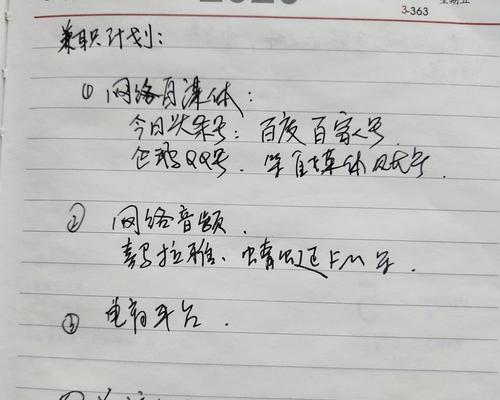 2020
3-363
星期五
兼职计划：
① 网络自媒体：
今日头条号：百度百家号．
企鹅QQ号．等自媒体及大号．
② 网络音频．
喜马拉雅、蜻蜓FM等．
③ 电商平台．